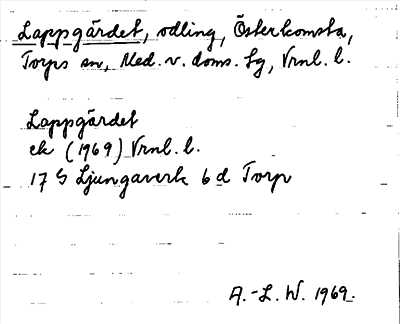 Lappgärdet, odling, Österkomsta,
Torps sn, Med. v. doms. tg, Vrnl. l.
Lappgärdet
ek (1969) Vrnl. l.
17 G Ljungaverk 6 d Torp
A.-L. W. 1969.